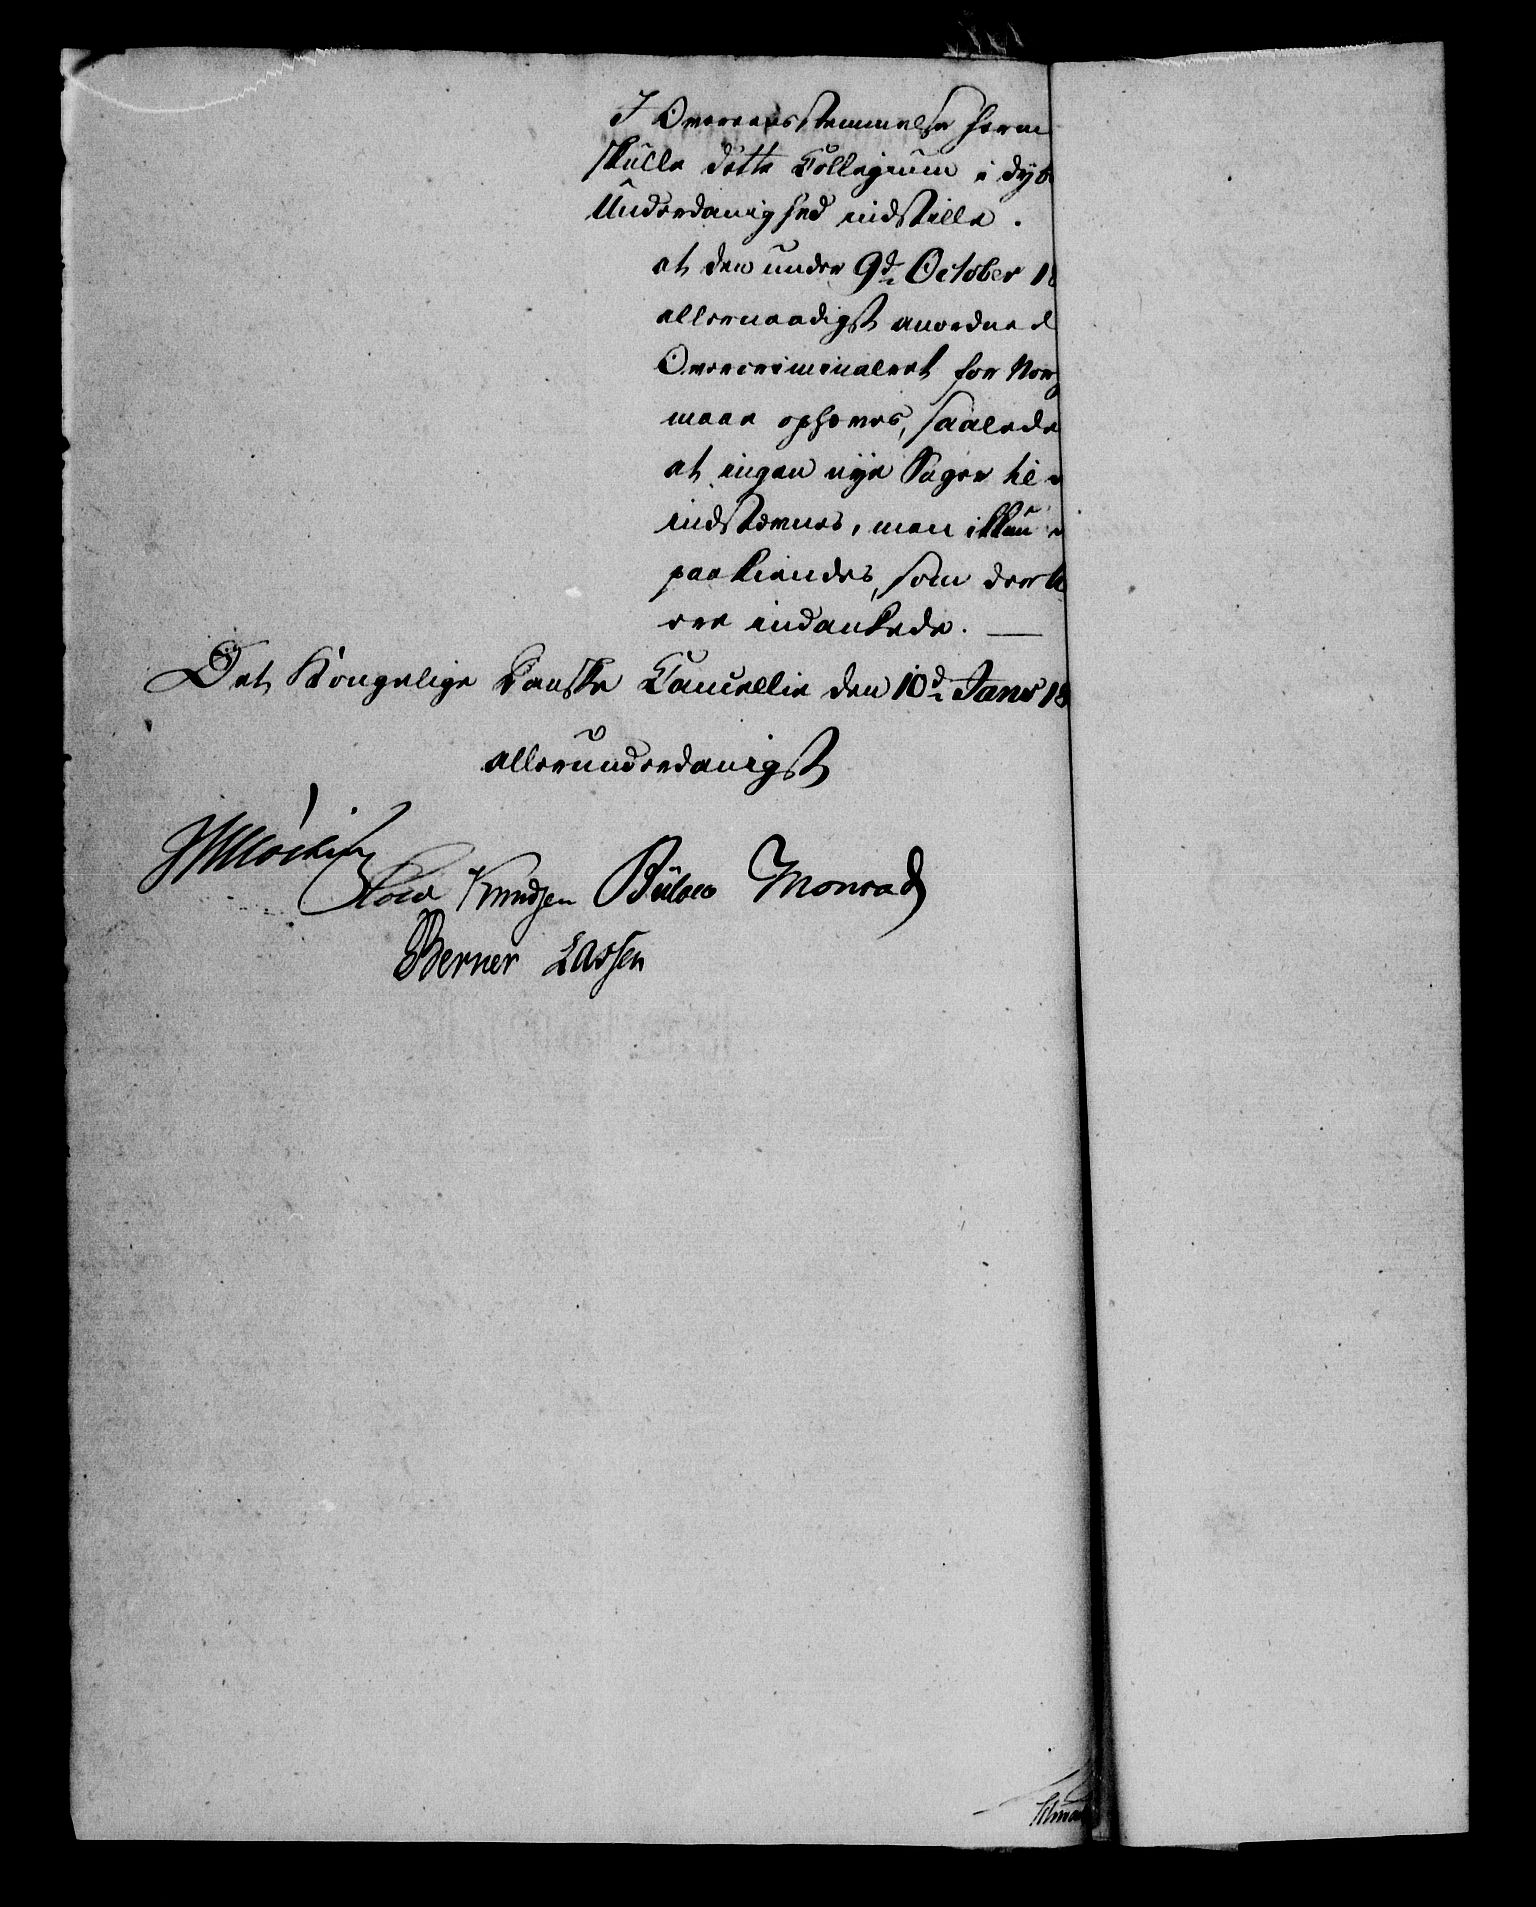 I Overeensstemmelse herm
skulle dette Collegium i dyb
Underdanighed indstille.
at den under 9d. October 18
allernaadigst anordned
Overcriminalret for Norg
maae ophæves, saalede
at ingen nye Sager til
indstævnes, men ikkun
paakiendes, som der
ere indankede. —
Det Kongelige Danske Cancellie den 10d. Janr 18
allerunderdanigst
Knudsen Bülow Monrad
Berner Lassen